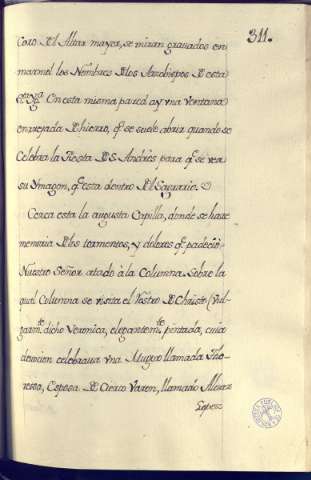 311.
Coro Del Altar mayor, se miran gravados en
marmol los Nombres De los Arzobispos De esta
En esta misma pared ay vna Ventana
enrejada De hierro, q.e se suele abrir quando se
Celebra la Fiesta De S. Andrés para q.e se vea
su Ymagen, q.e esta dentro Del Sagrario.
Cerca esta la augusta Capilla, donde se hace
memoria De los tormentos, y dolores q.e padeció
Nuestro Señor atado à la Columna. Sobre la
qual Columna se visita el Rostro De Christo (vul-
garm.te dicho Veronica, elegantem.te pintada, cuia
devocion celebraua vna Muger llamada The-
resa, Esposa De Cierto Varon, llamado Alvaro
Lopez